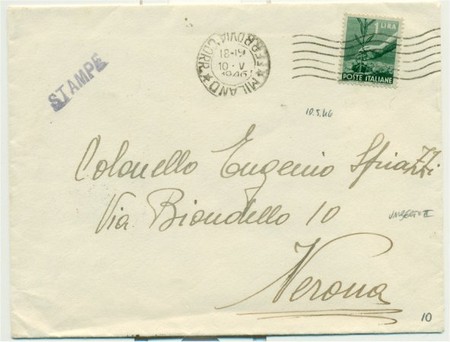 STAMPE
MILANO FERROVIA CORR.
18-19
10-V
1946
1 LIRA
POSTE ITALIANE
10.5.46
Colonello Eugenio Spiazzi
Via Biondello 10
Verona
10